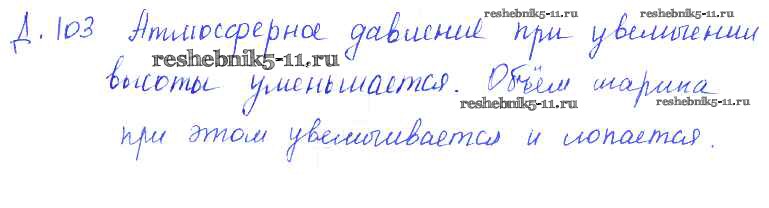 Д. 103 Атмосферное давление при увеличении
высоты уменьшается. Объём шарика
при этом увеличивается и лопается.
reshebnik5-11.ru
reshebnik5-11.ru
reshebnik5-11.ru
reshebnik5-11.ru